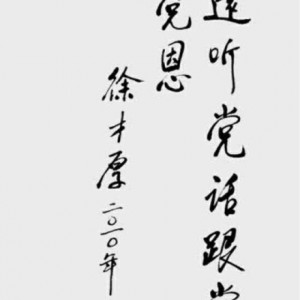 远听党话跟党
党恩
徐才厚
二〇一〇年